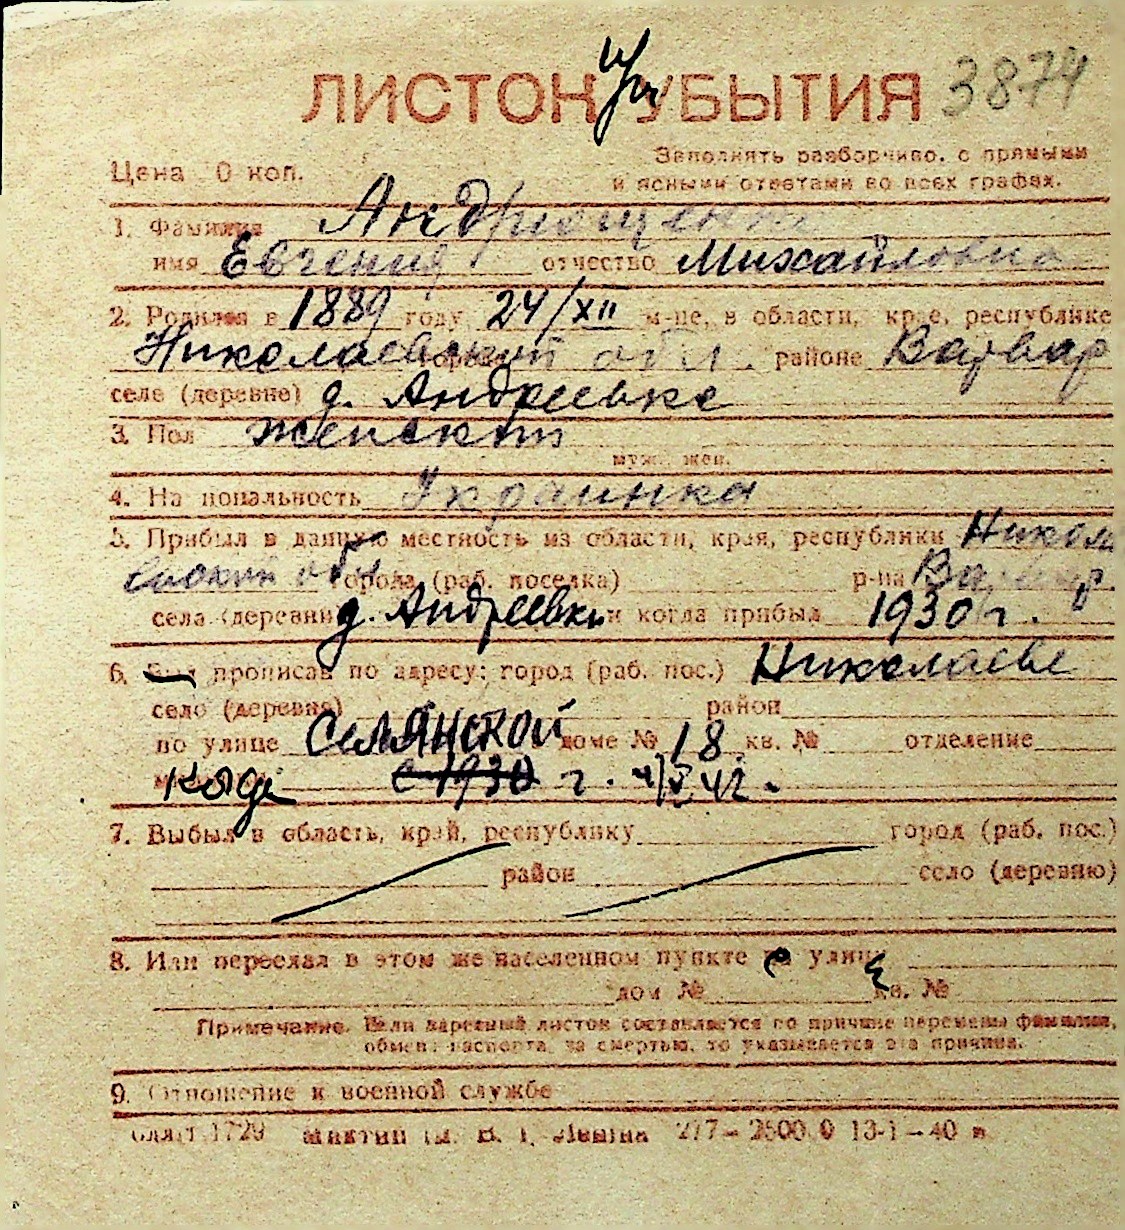 ЛИСТОК УБЫТИЯ 3874
Цена 10 коп. Заполнять разборчиво, с прямыми
и ясными ответами во всех графах.
1. Фамилия Андрющенко
имя Евгения отчество Михайловна
2. Родился в 1889 году 24/XII м-це, в области, крае, республике
Николаевской обл. районе Варвар
селе (деревне) д. Андреевке
3. Пол женский
муж., жен.
4. Национальность Украинка
5. Прибыл в данную местность из области, края, республики Никола
евской обл города (раб. поселка) р-на Варвар
села (деревни) д. Андреевки и когда прибыл 1930 г.
6. Был прописан по адресу: город (раб. пос.) Николаеве
село (деревня) район
по улице Селянской доме № 18 кв. № отделение
с 1930 г.
7. Выбыл в область, край, республику город (раб. пос.)
район село (деревню)
8. Или переехал в этом же населенном пункте на улицу
дом № кв. №
Примечание. Если адресный листок составляется по причине перемены фамилии,
обмена паспорта, за смертью, то указывается эта причина.
9. Отношение к военной службе
1729 277–2500 0 13-1–40